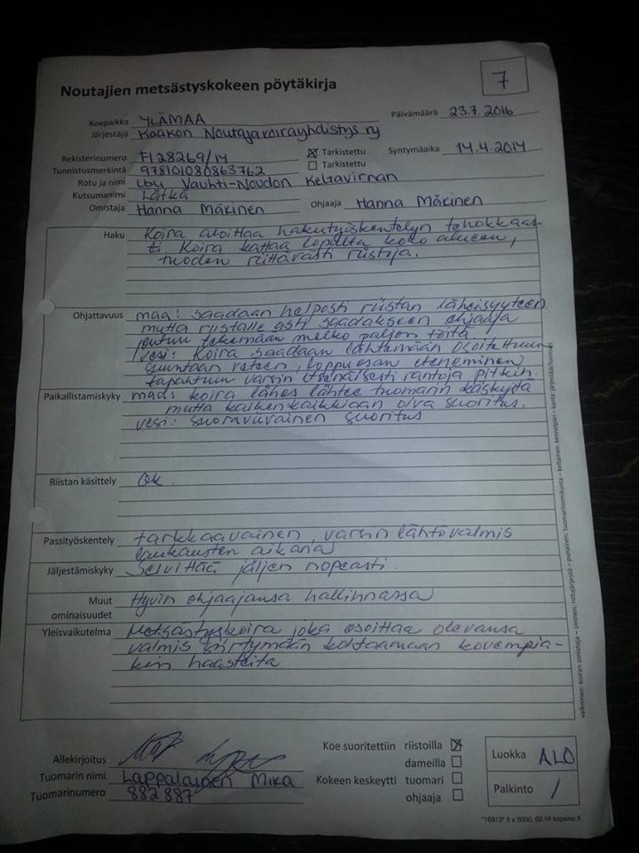 7
Noutajien metsästyskokeen pöytäkirja
Koepaikka YLÄMAA Päivämäärä 23.7.2016
Järjestäjä Kaakon Noutajakoirayhdistys ry
Rekisterinumero FI28269/14 Tarkistettu Syntymäaika 14.4.2014
Tunnistusmerkintä 978101080863762 Tarkistettu
Rotu ja nimi lbu Vauhti-Noudon Keltavirnan
Kutsumanimi Lätkä
Omistaja Hanna Mäkinen Ohjaaja Hanna Mäkinen
Haku Koira aloittaa hakutyöskentelyn tehokkaas-
ti. Koira kattaa lopulta koko alueen,
tuoden riittävästi riistoja.
Ohjattavuus maa: saadaan helposti riistan läheisyyteen
mutta riistalle asti saadakseen ohjaaja
joutuu tekemään melko paljon töitä
vesi: Koira saadaan lähtemään osoitettuun
suuntaan veteen, loppuosan eteneminen
tapahtuu varsin itsenäisesti rantoja pitkin.
Paikallistamiskyky maa: koira lähes lähtee tuomarin käskystä
mutta kaikenkaikkiaan oiva suoritus.
vesi: suoraviivainen suoritus
Riistan käsittely Ok.
Passityöskentely tarkkaavainen, varsin lähtövalmis
laukausten aikana
Jäljestämiskyky Selvittää jäljen nopeasti.
Muut Hyvin ohjaajansa hallinnassa
ominaisuudet
Yleisvaikutelma Metsästyskoira joka osoittaa olevansa
valmis siirtymään kohtaamaan kovempia-
kin haasteita
Koe suoritettiin riistoilla
dameilla
Luokka ALO
Allekirjoitus
Tuomarin nimi Lappalainen Mika
Kokeen keskeytti tuomari
ohjaaja
Palkinto 1
Tuomarinumero 882887